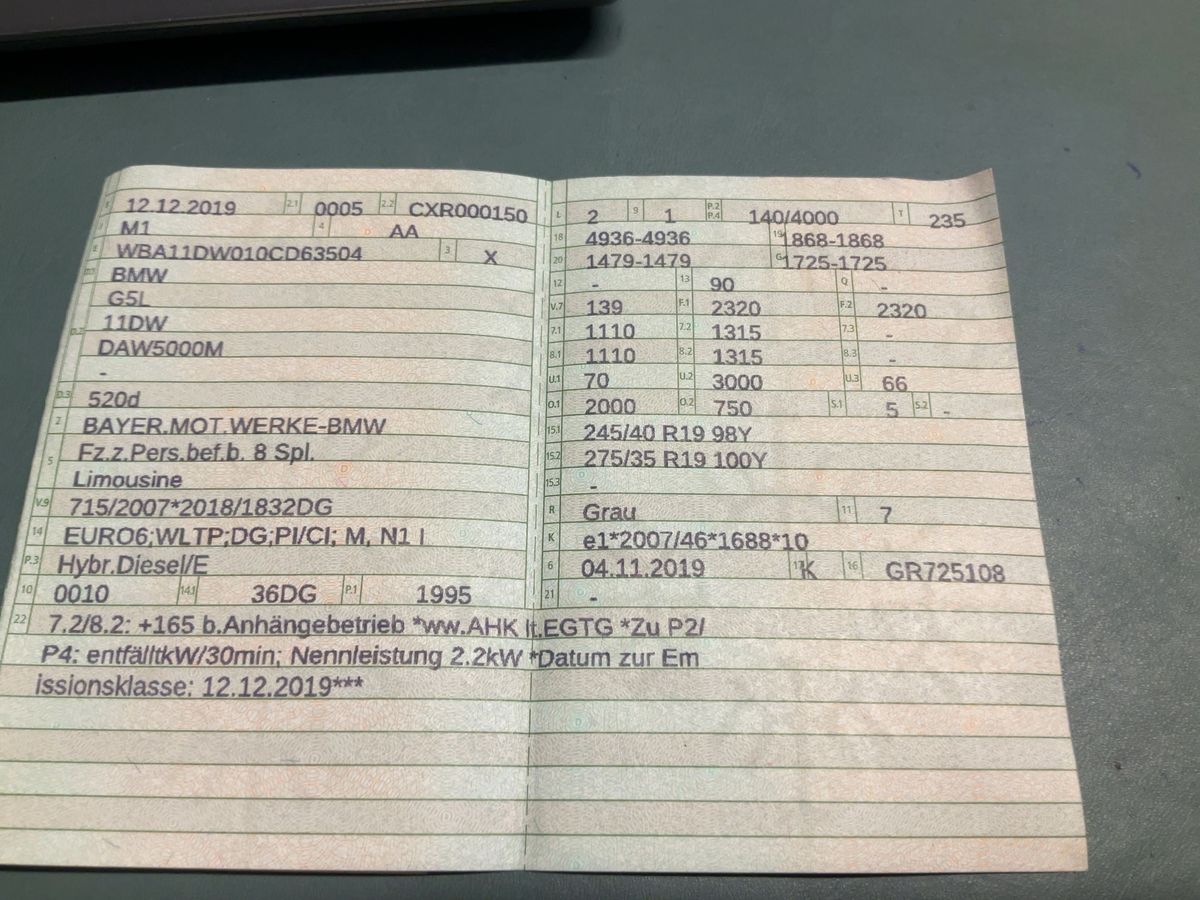 B 12.12.2019 2.1 0005 2.2 CXR000150
J M1 4 AA
E WBA11DW010CD63504 3 X
D.1 BMW
G5L
D.2 11DW
DAW5000M
-
D.3 520d
2 BAYER.MOT.WERKE-BMW
5 Fz.z.Pers.bef.b. 8 Spl.
Limousine
V.9 715/2007*2018/1832DG
14 EURO6;WLTP;DG;PI/CI; M, N1 I
P.3 Hybr.Diesel/E
10 0010 14.1 36DG P.1 1995
L 2 9 1 P.2 P.4 140/4000 T 235
18 4936-4936 19 1868-1868
20 1479-1479 G 1725-1725
12 - 13 90 Q -
V.7 139 F.1 2320 F.2 2320
7.1 1110 7.2 1315 7.3 -
8.1 1110 8.2 1315 8.3 -
U.1 70 U.2 3000 U.3 66
O.1 2000 O.2 750 S.1 5 S.2 -
15.1 245/40 R19 98Y
15.2 275/35 R19 100Y
15.3 -
R Grau 11 7
K e1*2007/46*1688*10
6 04.11.2019 17 K 16 GR725108
21 -
22 7.2/8.2: +165 b.Anhängebetrieb *ww.AHK lt.EGTG *Zu P2/
P4: entfälltkW/30min; Nennleistung 2.2kW *Datum zur Em
issionsklasse: 12.12.2019***